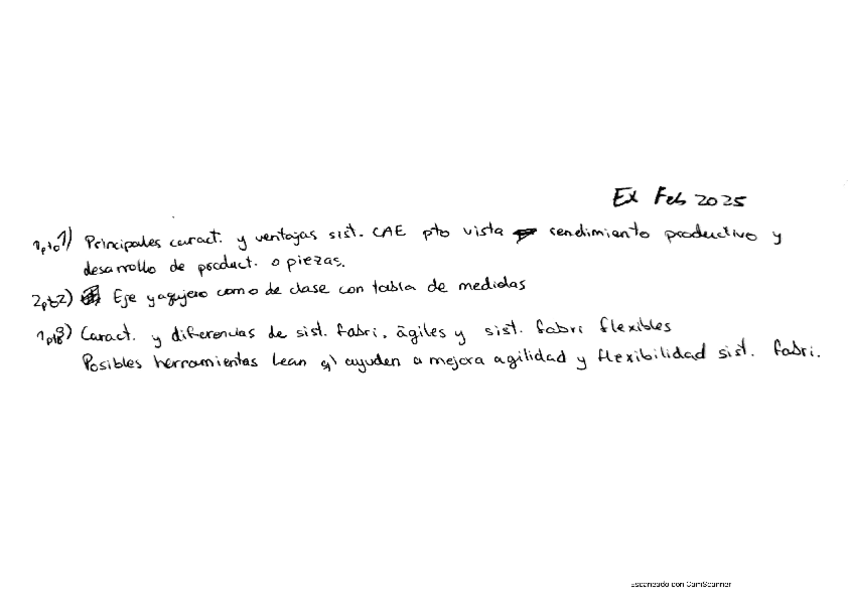 Ex Feb 2025
1pto 1) Principales caract. y ventajas sist. CAE pto vista rendimiento productivo y
desarrollo de product. o piezas.
2pto 2) Eje y agujero como de clase con tabla de medidas
1pto 3) Caract. y diferencias de sist. fabri. ágiles y sist. fabri flexibles
Posibles herramientas Lean q) ayuden a mejora agilidad y flexibilidad sist. fabri.
Escaneado con CamScanner